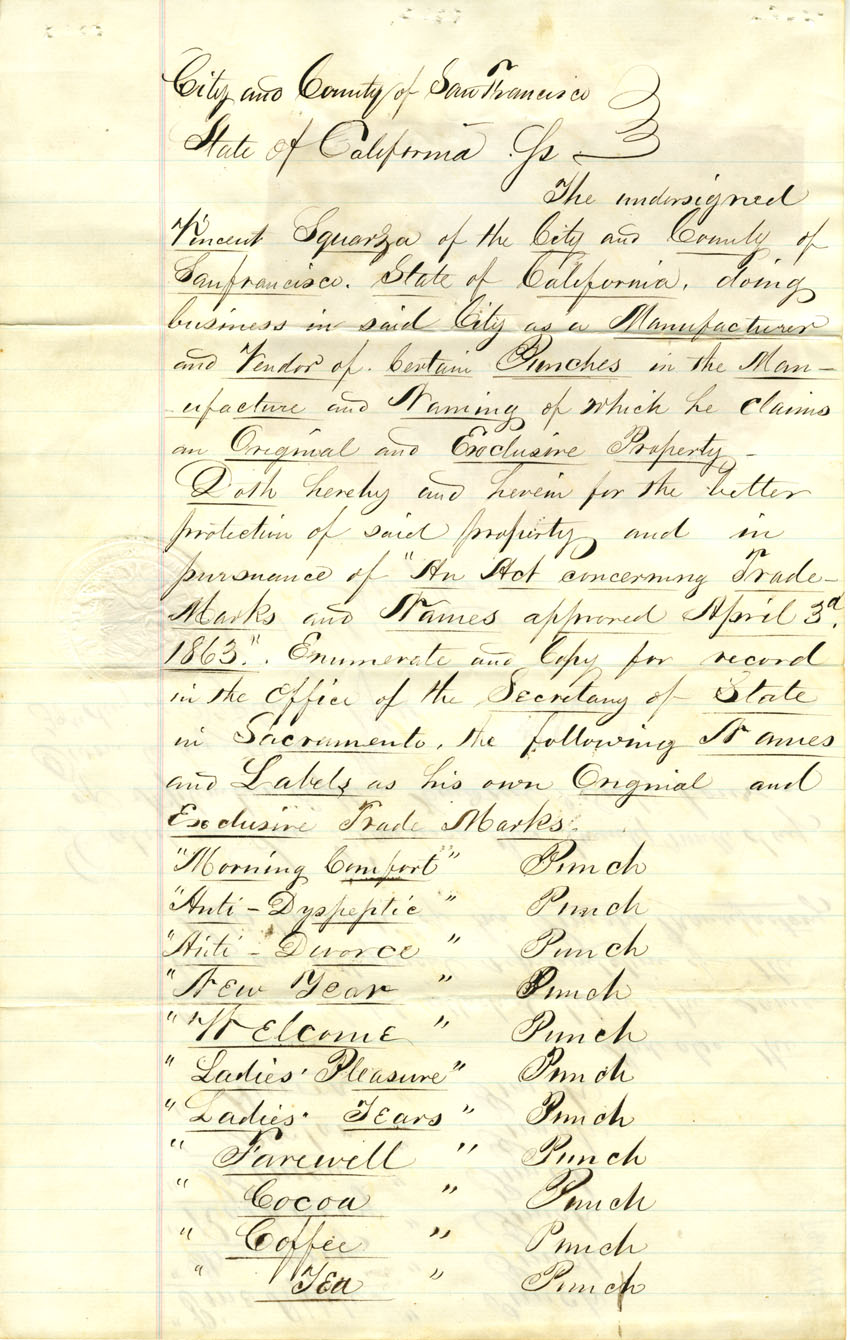 City and County of San Francisco
State of California Ss
The undersigned
Vincent Squarza of the City and County of
Sanfrancisco. State of California, doing
business in said City as a Manufacturer
and Vendor of. Certain Punches in the Man-
-ufacture and Naming of which he claims
an Original and Exclusive Property -
Doth hereby and herein for the better
protection of said property and in
pursuance of "An Act concerning Trade-
Marks and Names approved April 3d.
1863.". Enumerate and Copy for record
in the office of the Secretary of State
in Sacramento, the following Names
and Labels as his own Original and
Exclusive Trade Marks:
"Morning Comfort" Punch
"Anti-Dyspeptic" Punch
"Anti-Divorce" Punch
"New Year" Punch
"Welcome" Punch
"Ladies' Pleasure" Punch
"Ladies' Tears" Punch
"Farewell" Punch
"Cocoa" Punch
"Coffee" Punch
"Tea" Punch